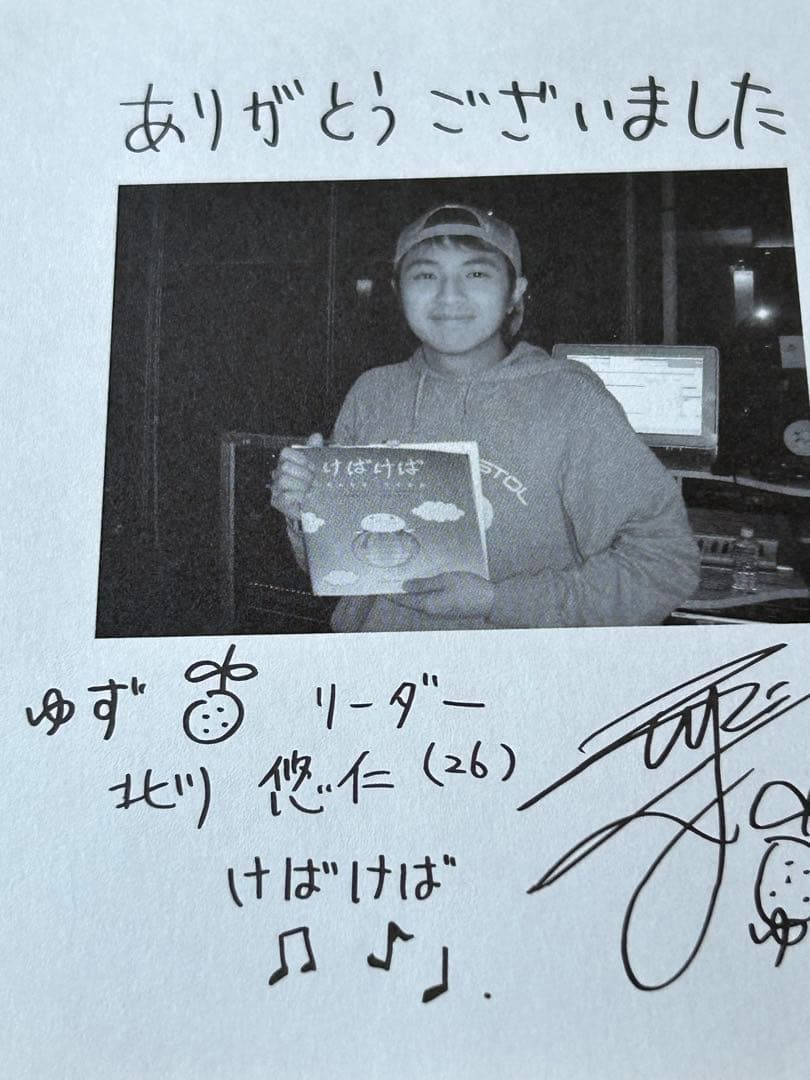 ありがとうございました
けばけば
STOL
ゆず リーダー
北川 悠仁 (26)
けばけば
ゆ